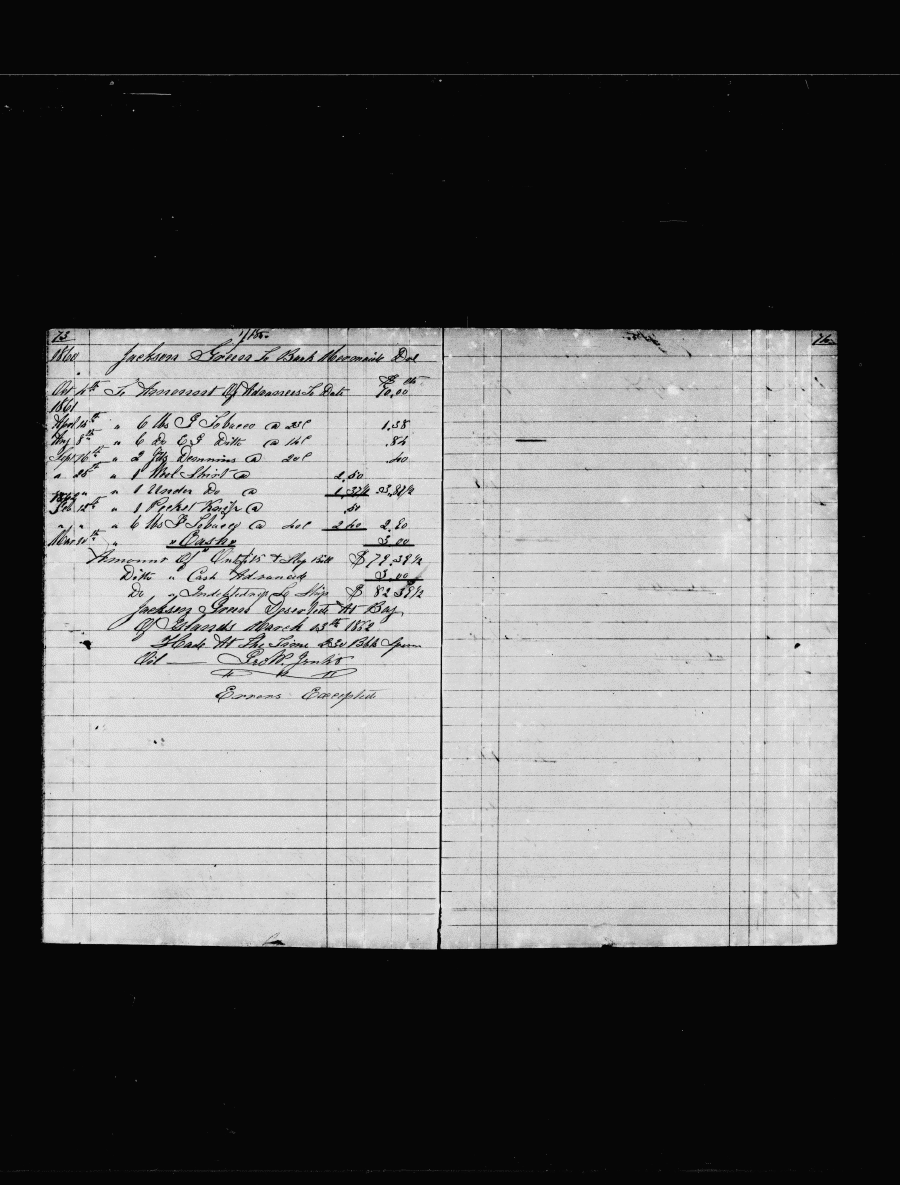 75
76
1860 Jackson Green To Bark Mermaid Dol
$ cts
Oct 4th To Amount Of Advances To Date 70.00
1861
April 14th " 6 lbs P Tobacco @ 23c 1.38
Aug 8th " 6 Do E G Ditto @ 14c .84
Sept 16th " 2 Demmins @ 20c .40
" 28th " 1 Wool Shirt @ 2.50
" " 1 Under Do @ 1.37½ 3.87½
1862
Feb 18th " 1 Pocket Knife @ 50
" " " 6 lbs P Tobacco @ 40c 2.40 2.90
Mar " " Cash " 3.00
Amount Of Outfits & Slop Bill $ 79.39½
Ditto " Cash Advanced 3.00
Do " Indebtedness To Ship $ 82.39½
Jackson Green Deserted At Bay
Of Islands March 13th 1862
Had At The Time Bbls Sperm
Oil —
Errors Excepted